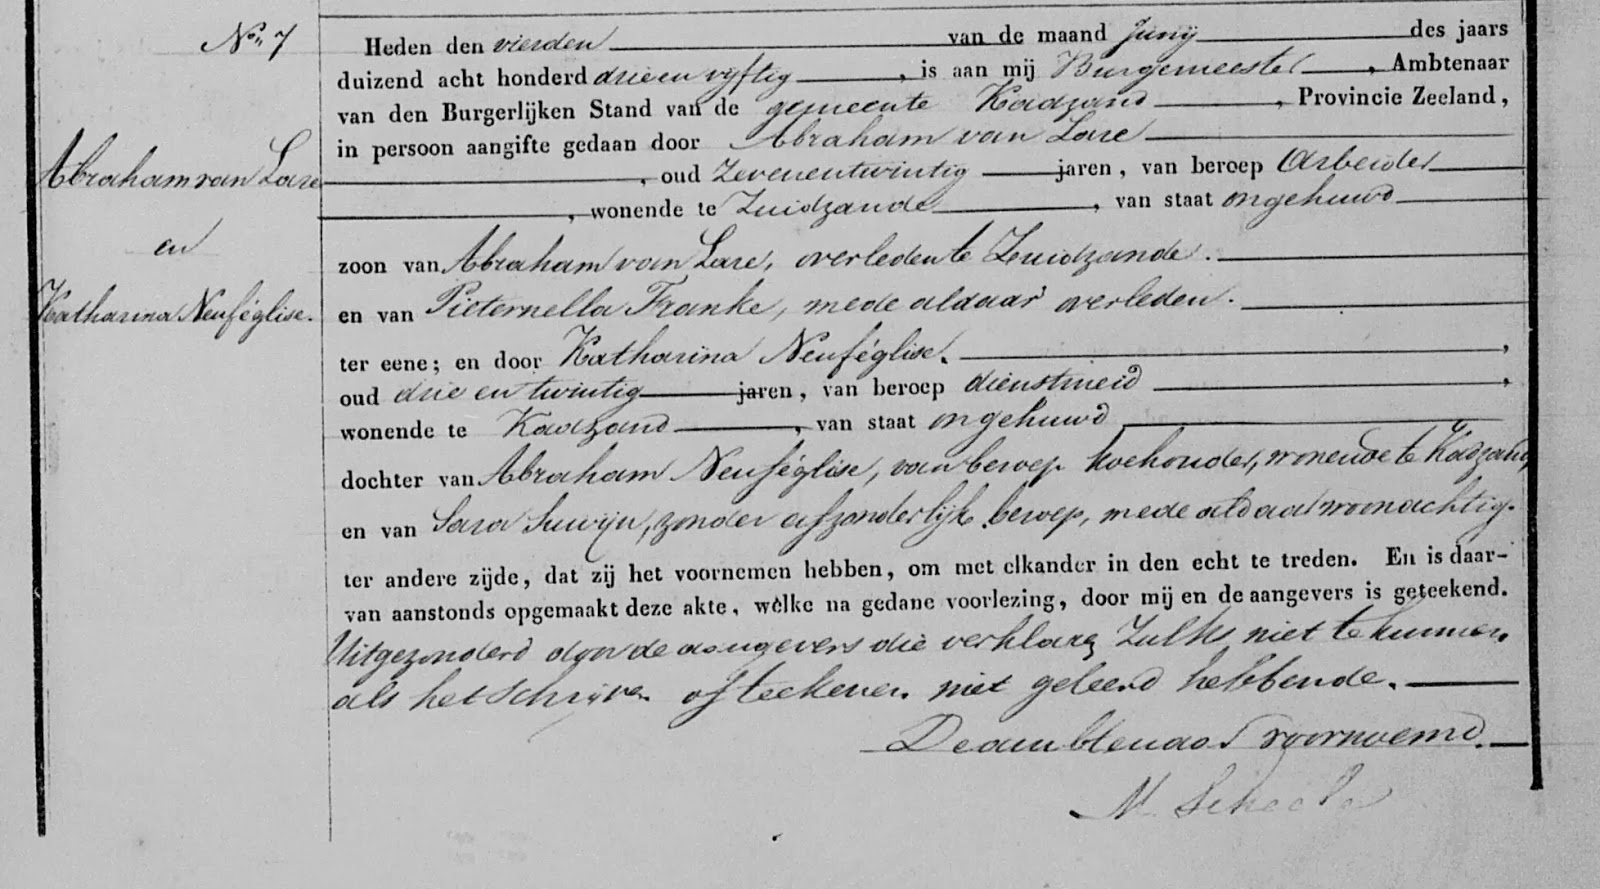 No. 7
Abraham van Lare
en
Katharina Neuféglise.
Heden den vierden van de maand Junij des jaars
duizend acht honderd drie en vijftig, is aan mij Burgemeester, Ambtenaar
van den Burgerlijken Stand van de gemeente Kadzand, Provincie Zeeland,
in persoon aangifte gedaan door Abraham van Lare
, oud Zevenentwintig jaren, van beroep Arbeider
, wonende te Zuidzande, van staat ongehuwd
zoon van Abraham van Lare, overleden te Zuidzande.
en van Pieternella Franke, mede aldaar overleden.
ter eene; en door Katharina Neuféglise.,
oud drie en twintig jaren, van beroep dienstmeid,
wonende te Kadzand, van staat ongehuwd
dochter van Abraham Neuféglise, van beroep koehouder, wonende te Kadzand,
en van Sara Suwijn, zonder afzonderlijk beroep, mede aldaar woonachtig.
ter andere zijde, dat zij het voornemen hebben, om met elkander in den echt te treden. En is daar-
van aanstonds opgemaakt deze akte, welke na gedane voorlezing, door mij en de aangevers is geteekend.
Uitgezonderd door de aangevers die verklaren Zulks niet te kunnen.
als het Schrijven of teekenen niet geleerd hebbende.
De ambtenaar voornoemd.